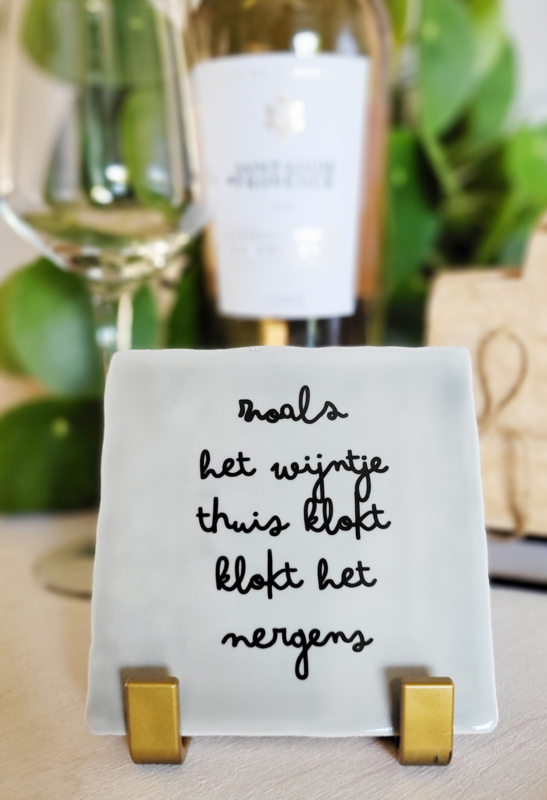 zoals
het wijntje
thuis klokt
klokt het
nergens